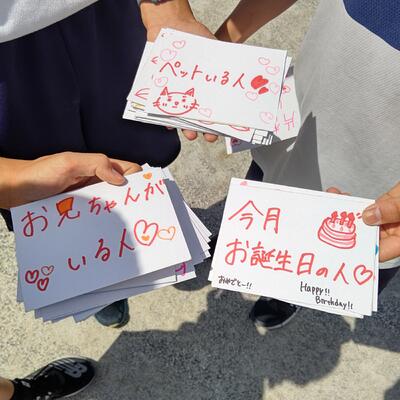 ペットいる人
お兄ちゃんが
いる人
今月
お誕生日の人
おめでとー!!
Happy!!
Birthday!!